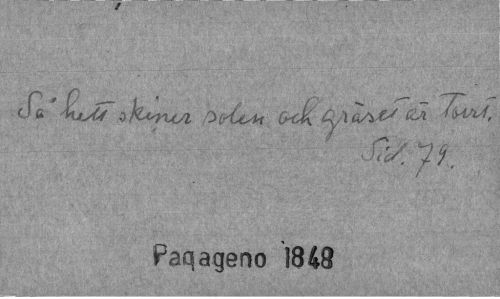 Så hett skiner solen och gräset är Torrt.
Sid. 79.
Papageno 1848